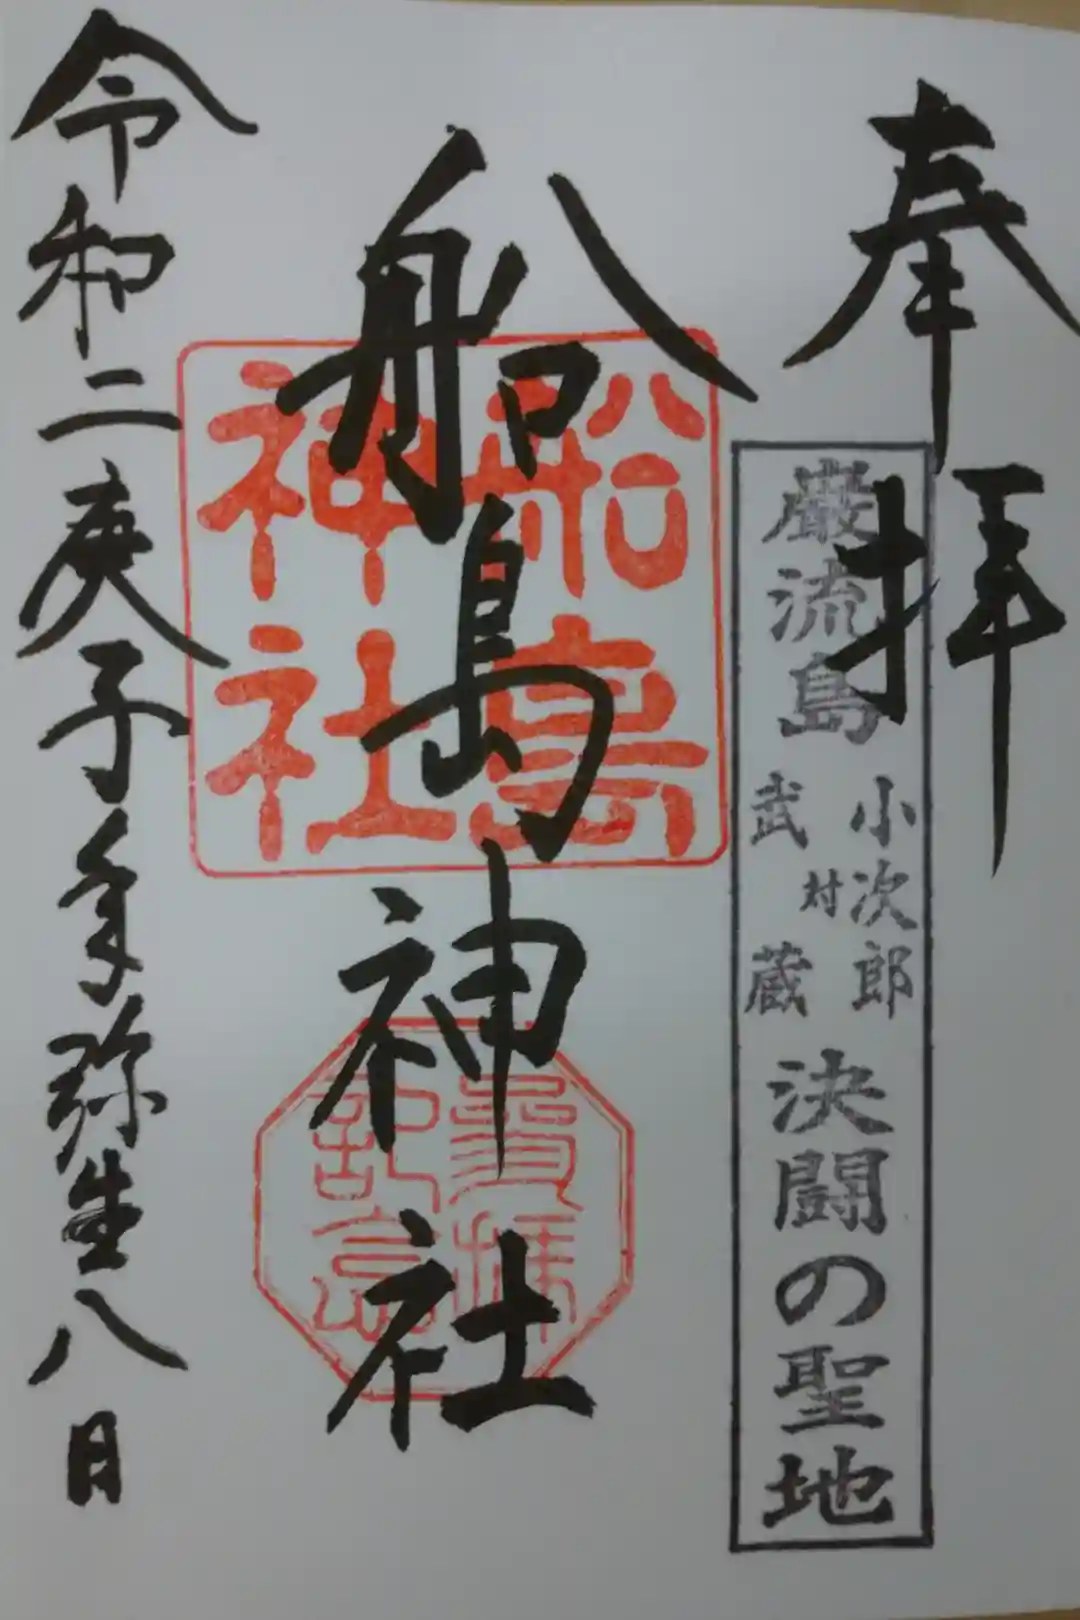 奉拝
巌流島 小次郎 対 武蔵 決闘の聖地
船島神社
船島
神社
参拝
記念
令和二庚子年弥生八日